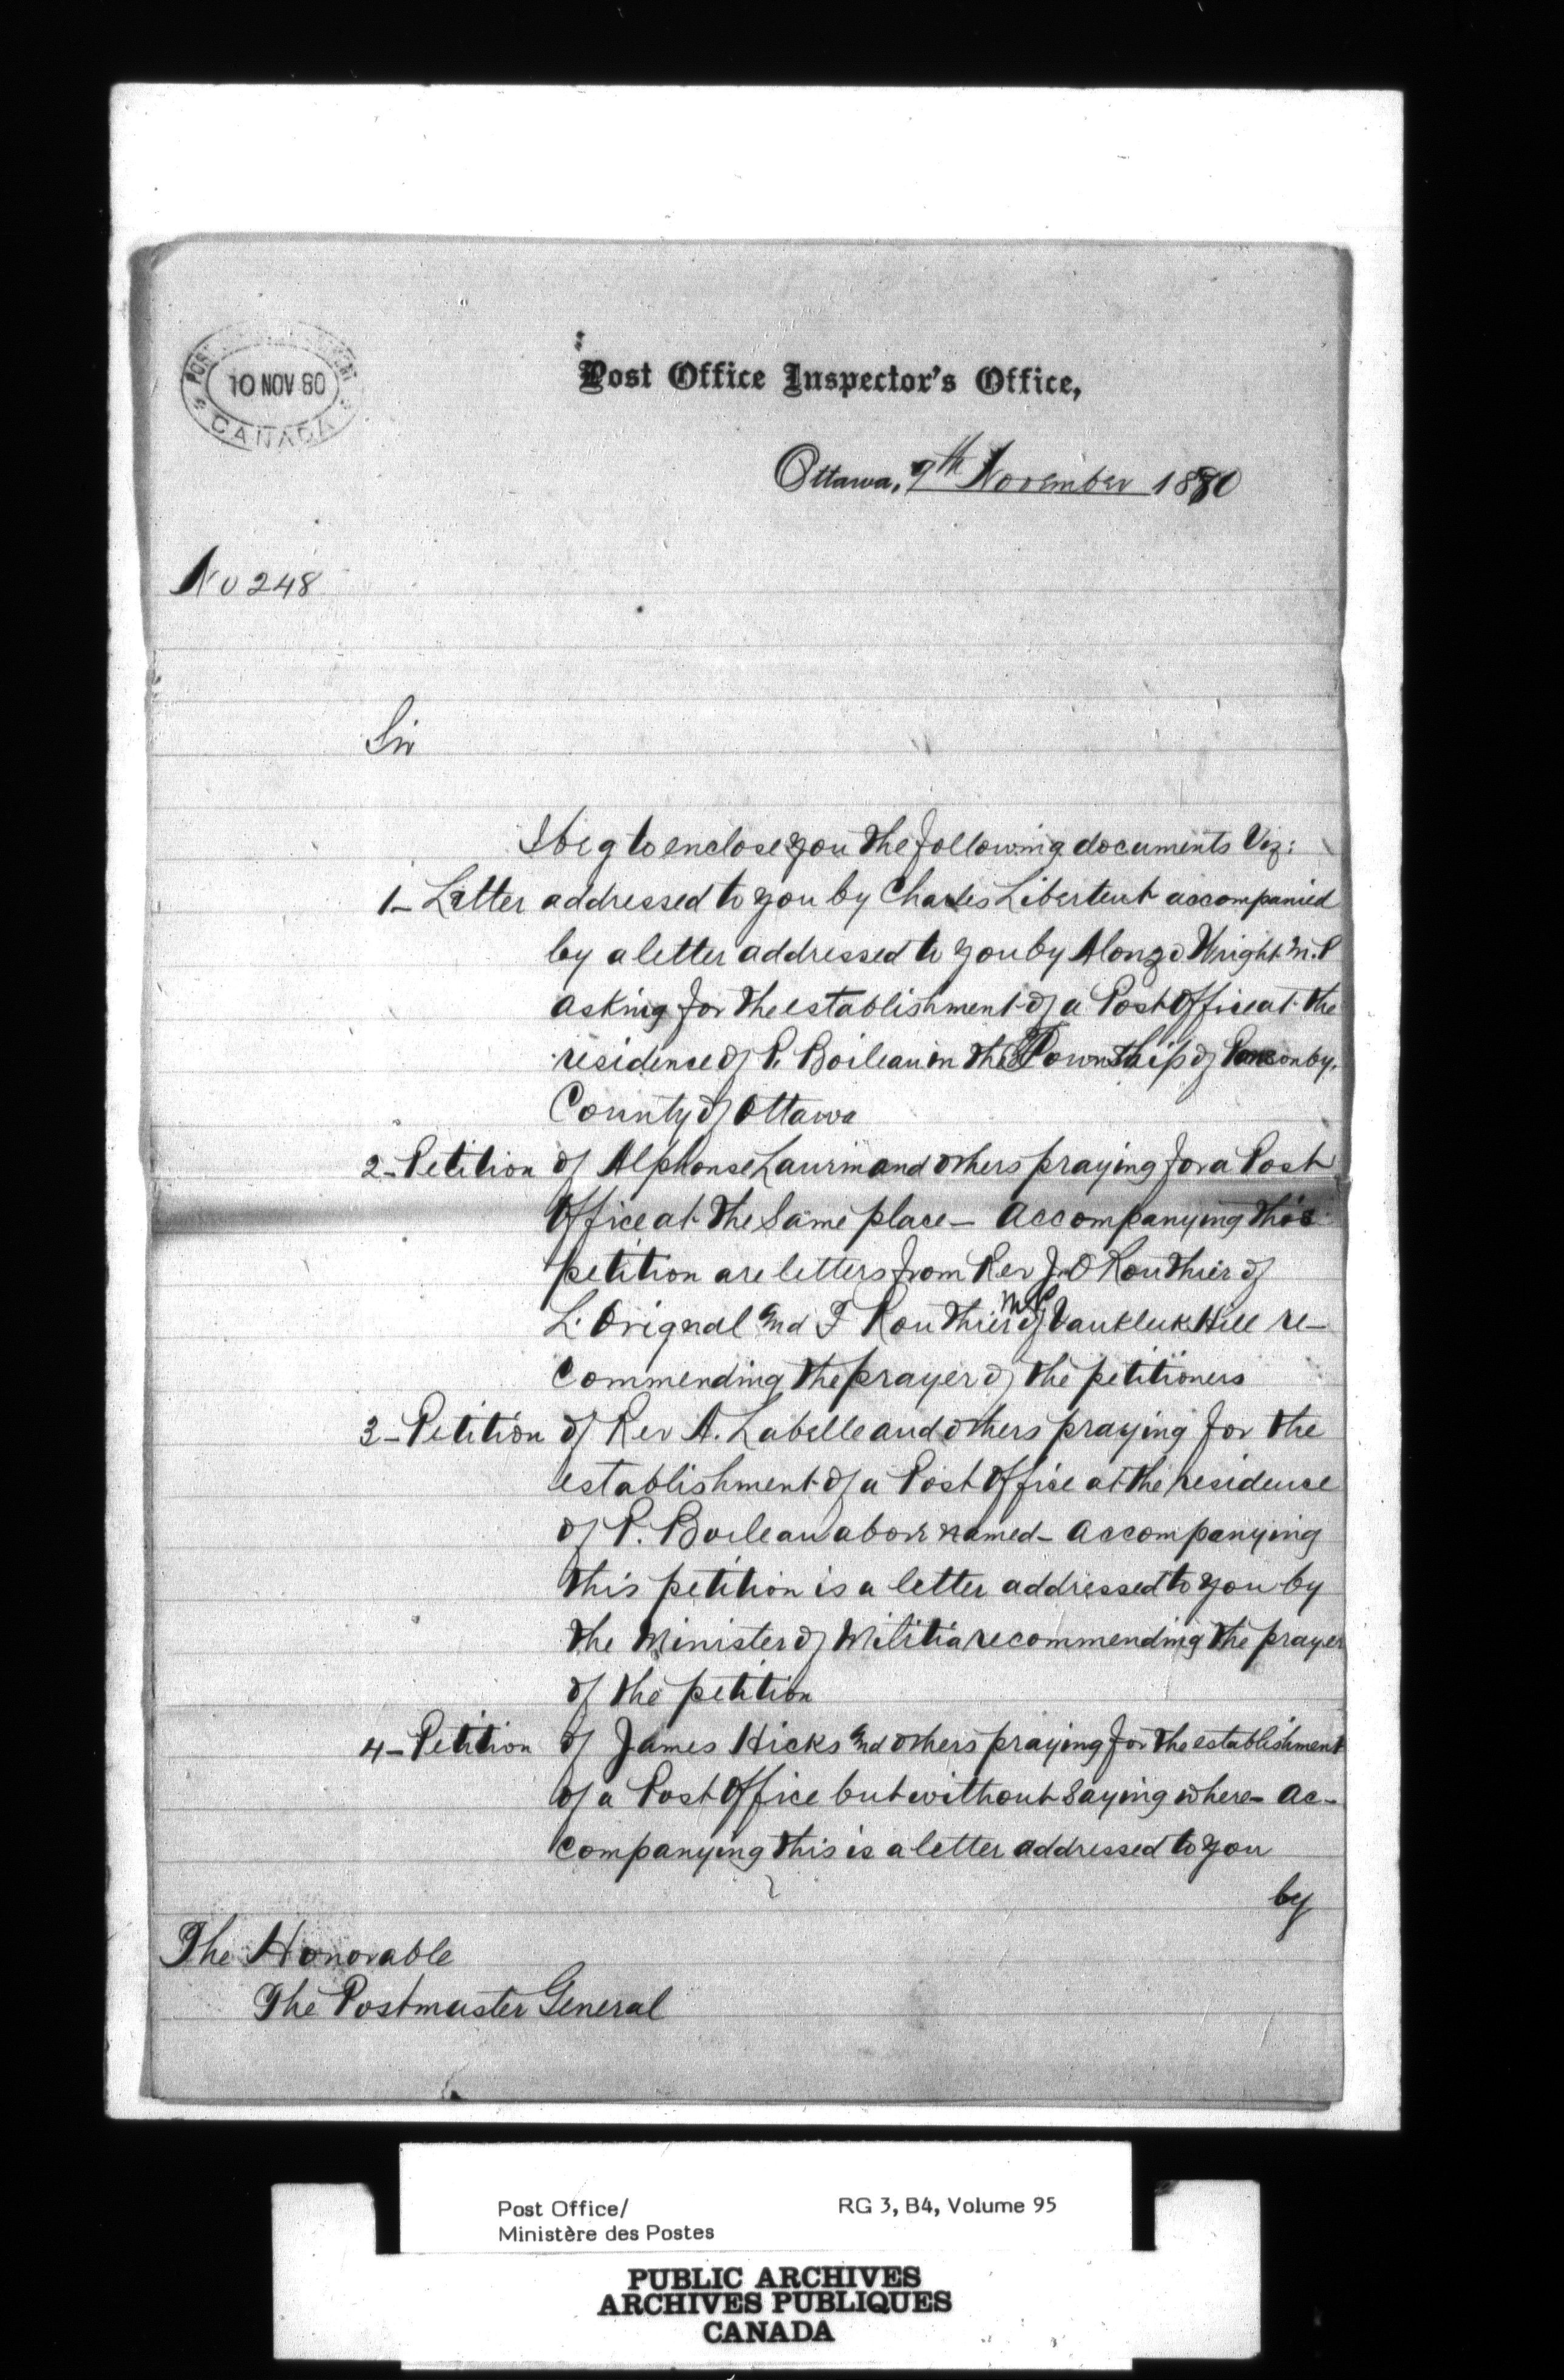 10 NOV 80
CANADA
Post Office Inspector's Office,
Ottawa, 9th November 1880
No 248
Sir
I beg to enclose you the following documents Viz:
1 - Letter addressed to you by Charles Libertent accompanied
by a letter addressed to you by Alonzo Wright M.P
asking for the establishment of a Post Office at the
residense of P. Boileau in the Township of Ponsonby.
County of Ottawa
2 - Petition of Alphonse Laurin and others praying for a Post
Office at the Same place - Accompanying this
petition are letters from Rev J. O Routhier of
L'Orignal and F Routhier MP of Vankleuk Hill re-
commending the prayer of the petitioners
3 - Petition of Rev A. Labelle and others praying for the
establishment of a Post Office at the residence
of P. Boileau above named - Accompanying
this petition is a letter addressed to you by
the Minister of Militia recommending the prayer
of the petition
4 - Petition of James Hicks and others praying for the establishment
of a Post Office but without Saying where - Ac-
companying this is a letter addressed to you
by
The Honorable
The Postmaster General
Post Office/
Ministère des Postes
RG 3, B4, Volume 95
PUBLIC ARCHIVES
ARCHIVES PUBLIQUES
CANADA